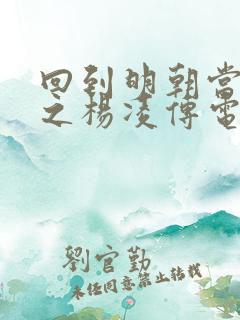 回到明朝當
之楊凌傳電
劉官勤
未經同意禁止轉載